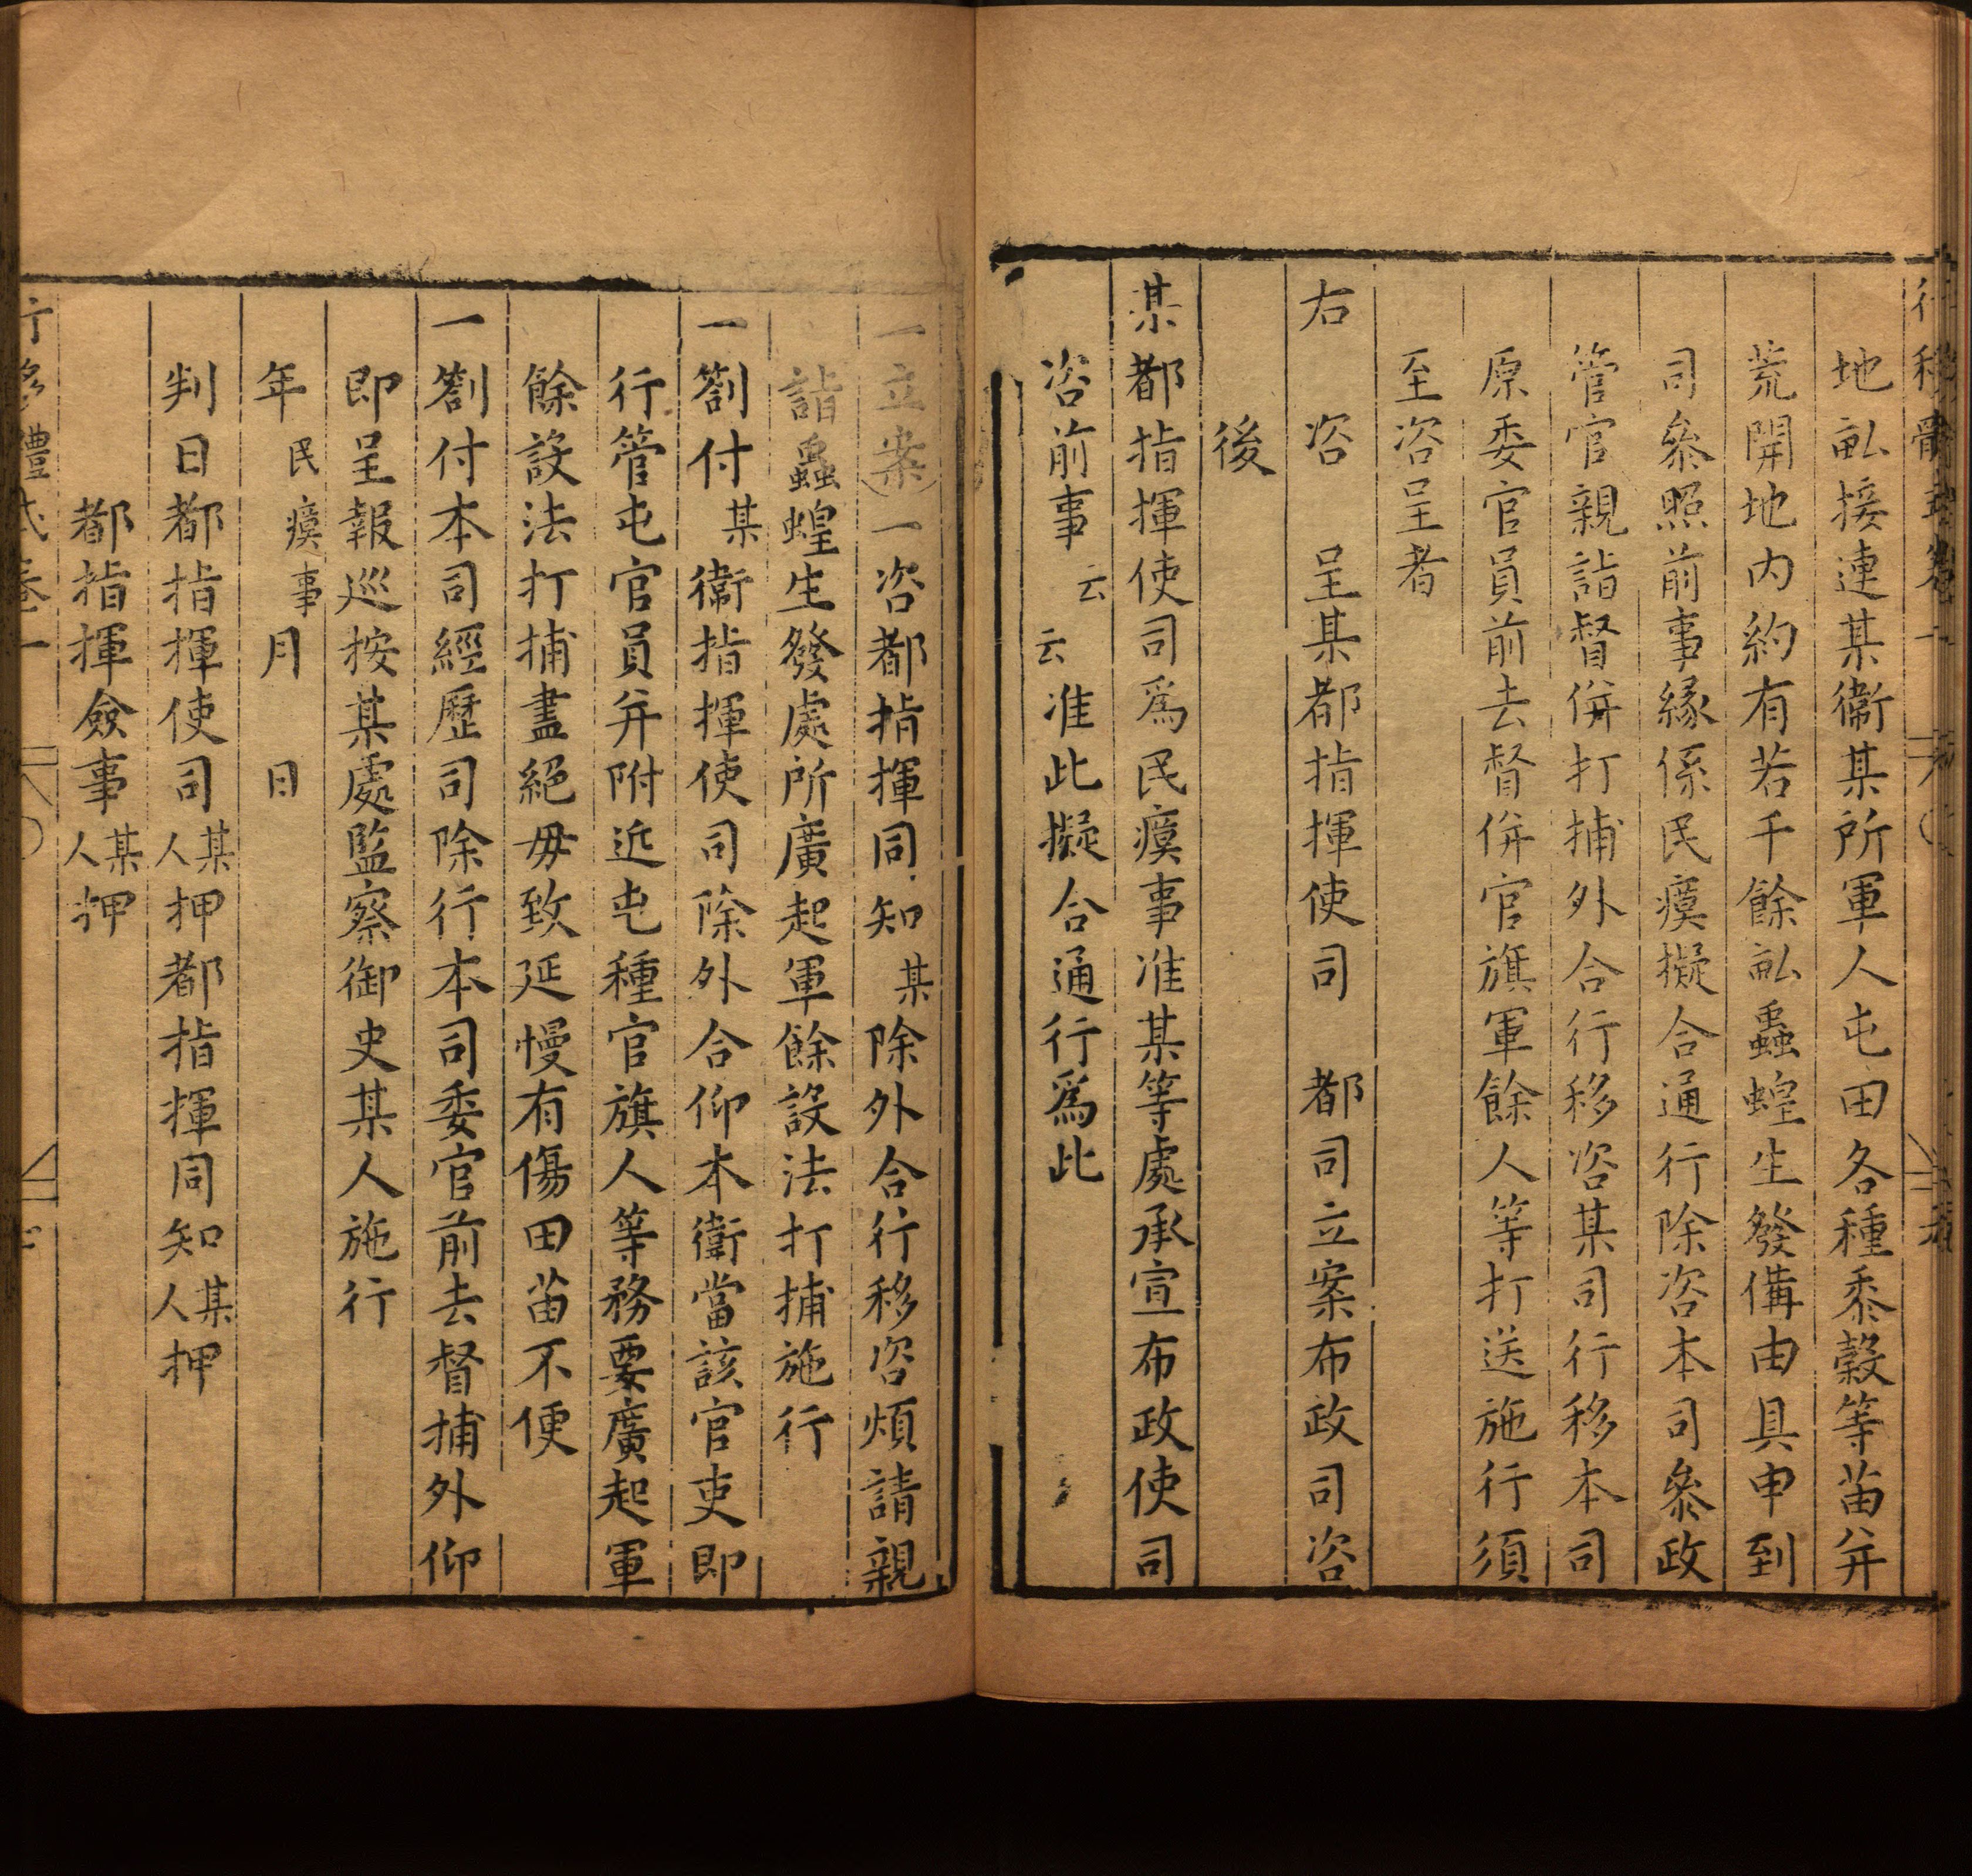 地畆接連某衞某所軍人屯田各種黍穀等苗并
荒開地内約有若干餘畆蟲蝗生發備由具申到
司叅照前事緣係民瘼擬合通行除咨本司叅政
管官親詣督併打捕外合行移咨某司行移本司
原委官員前去督併官旗軍餘人等打送施行須
至咨呈者
右咨　呈某都指揮使司　都司立案布政司咨
後
某都指揮使司爲民瘼事准某等處承宣布政使司
咨前事云云准此擬合通行爲此
一立案一咨都指揮同知某除外合行移咨煩請親
詣蟲蝗生發處所廣起軍餘設法打捕施行
一劄付某衞指揮使司除外合仰本衛當該官吏即
行管屯官員并附近屯種官旗人等務要廣起軍
餘設法打捕盡絕毋致延慢有傷田苗不便
一劄付本司經歷司除行本司委官前去督捕外仰
即呈報巡按某處監察御史某人施行
年民瘼事月　日
判日都指揮使司某人押都指揮同知某人押
都指揮僉事某人押
行移體式卷一